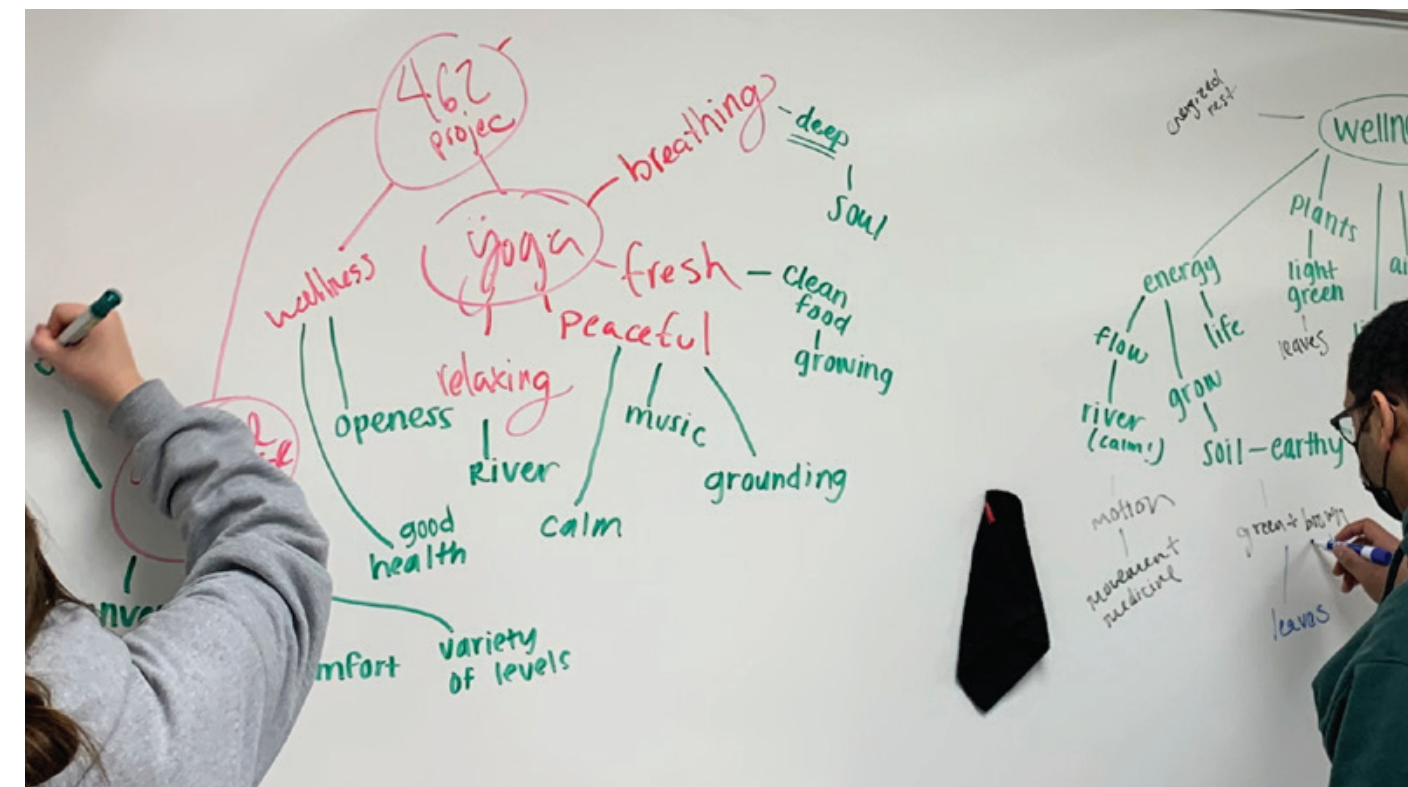 462
projec
breathing
deep
soul
yoga
fresh
clean
food
growing
wellness
peaceful
relaxing
openess
music
River
grounding
calm
good
health
variety
of levels
mfort
energized
rest
wellne
plants
light
green
leaves
energy
flow
life
grow
river
(calm!)
soil-earthy
motion
movement
medicine
green + brown
leaves